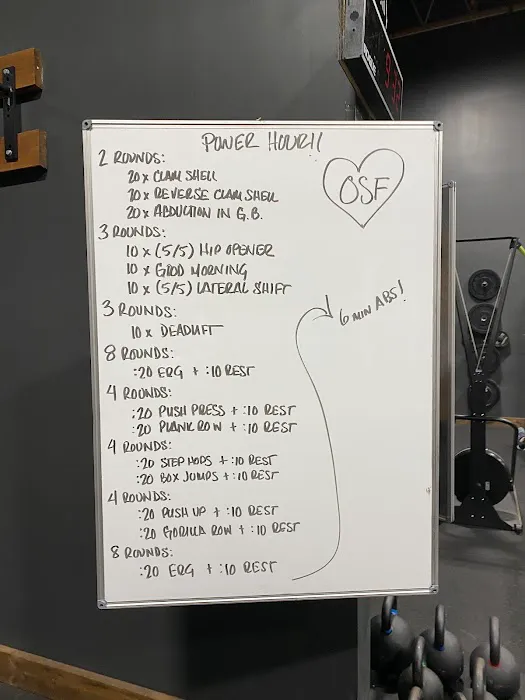 POWER HOUR!!
2 ROUNDS:
20 x CLAM SHELL
20 x REVERSE CLAM SHELL
20 x ABDUCTION IN G.B.
OSF
3 ROUNDS:
10 x (5/5) HIP OPENER
10 x GOOD MORNING
10 x (5/5) LATERAL SHIFT
3 ROUNDS:
10 x DEADLIFT
8 ROUNDS:
:20 ERG + :10 REST
4 ROUNDS:
:20 PUSH PRESS + :10 REST
:20 PLANK ROW + :10 REST
4 ROUNDS:
:20 STEP HOPS + :10 REST
:20 BOX JUMPS + :10 REST
4 ROUNDS:
:20 PUSH UP + :10 REST
:20 GORILLA ROW + :10 REST
8 ROUNDS:
:20 ERG + :10 REST
6 MIN ABS!